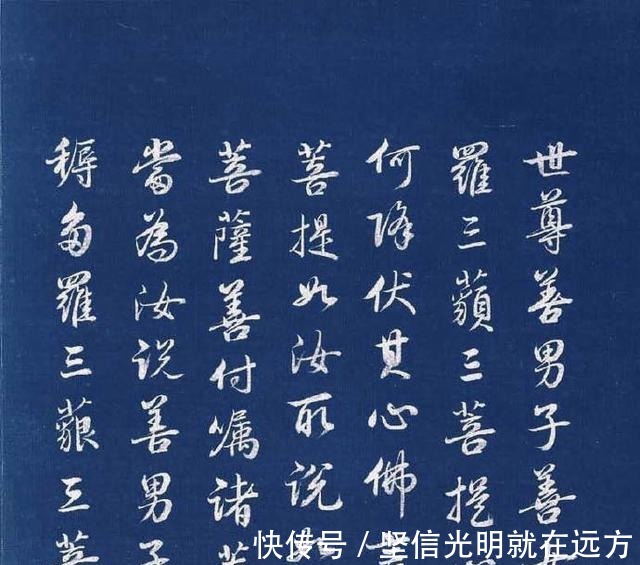 世尊善男子善
羅三藐三菩提
何降伏其心佛言
菩提如汝所說如
菩薩善付囑諸菩
當為汝說善男子
耨多羅三藐三菩
快传号/坚信光明就在远方